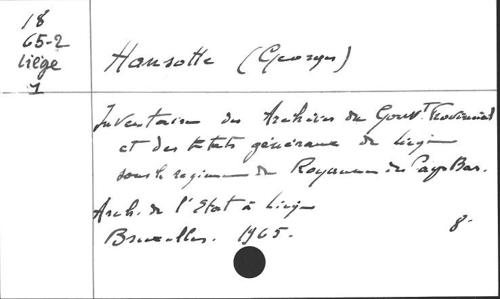 18
65-2
Liège
1
Hansotte (Georges)
Inventaire des Archives du Gouvt Provincial
et des Etats généraux de Liège
sous le régime du Royaume des Pays Bas.
Arch. de l'Etat à Liège
Bruxelles. 1965. 8°